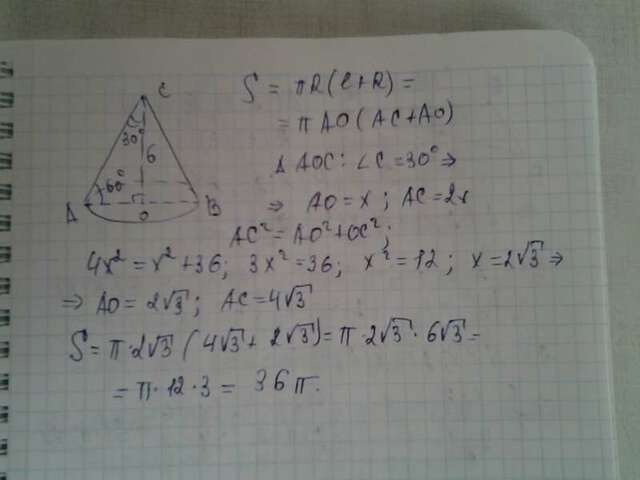 C
30°
6
60°
A
O
B
S = πR(ℓ+R) =
= πAO(AC+AO)
Δ AOC: ∠C = 30° ⇒
⇒ AO = x; AC = 2x
AC² = AO² + OC²;
4x² = x² + 36; 3x² = 36; x² = 12; x = 2√3 ⇒
⇒ AO = 2√3; AC = 4√3
S = π·2√3 (4√3 + 2√3) = π·2√3·6√3 =
= π·12·3 = 36π.